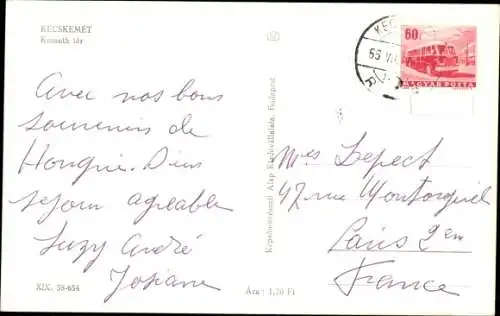 KECSKEMÉT
Kossuth tér
Avec nos bons
souvenirs de
Hongrie. Bon
séjour agréable
Suzy André
Josiane
XIX. 58-654
Ára: 1,20 Ft
Képzőművészeti Alap Kiadóvállalata, Budapest
60
MAGYAR POSTA
Mmes Lepect
47 rue Montorgueil
Paris 2em
France